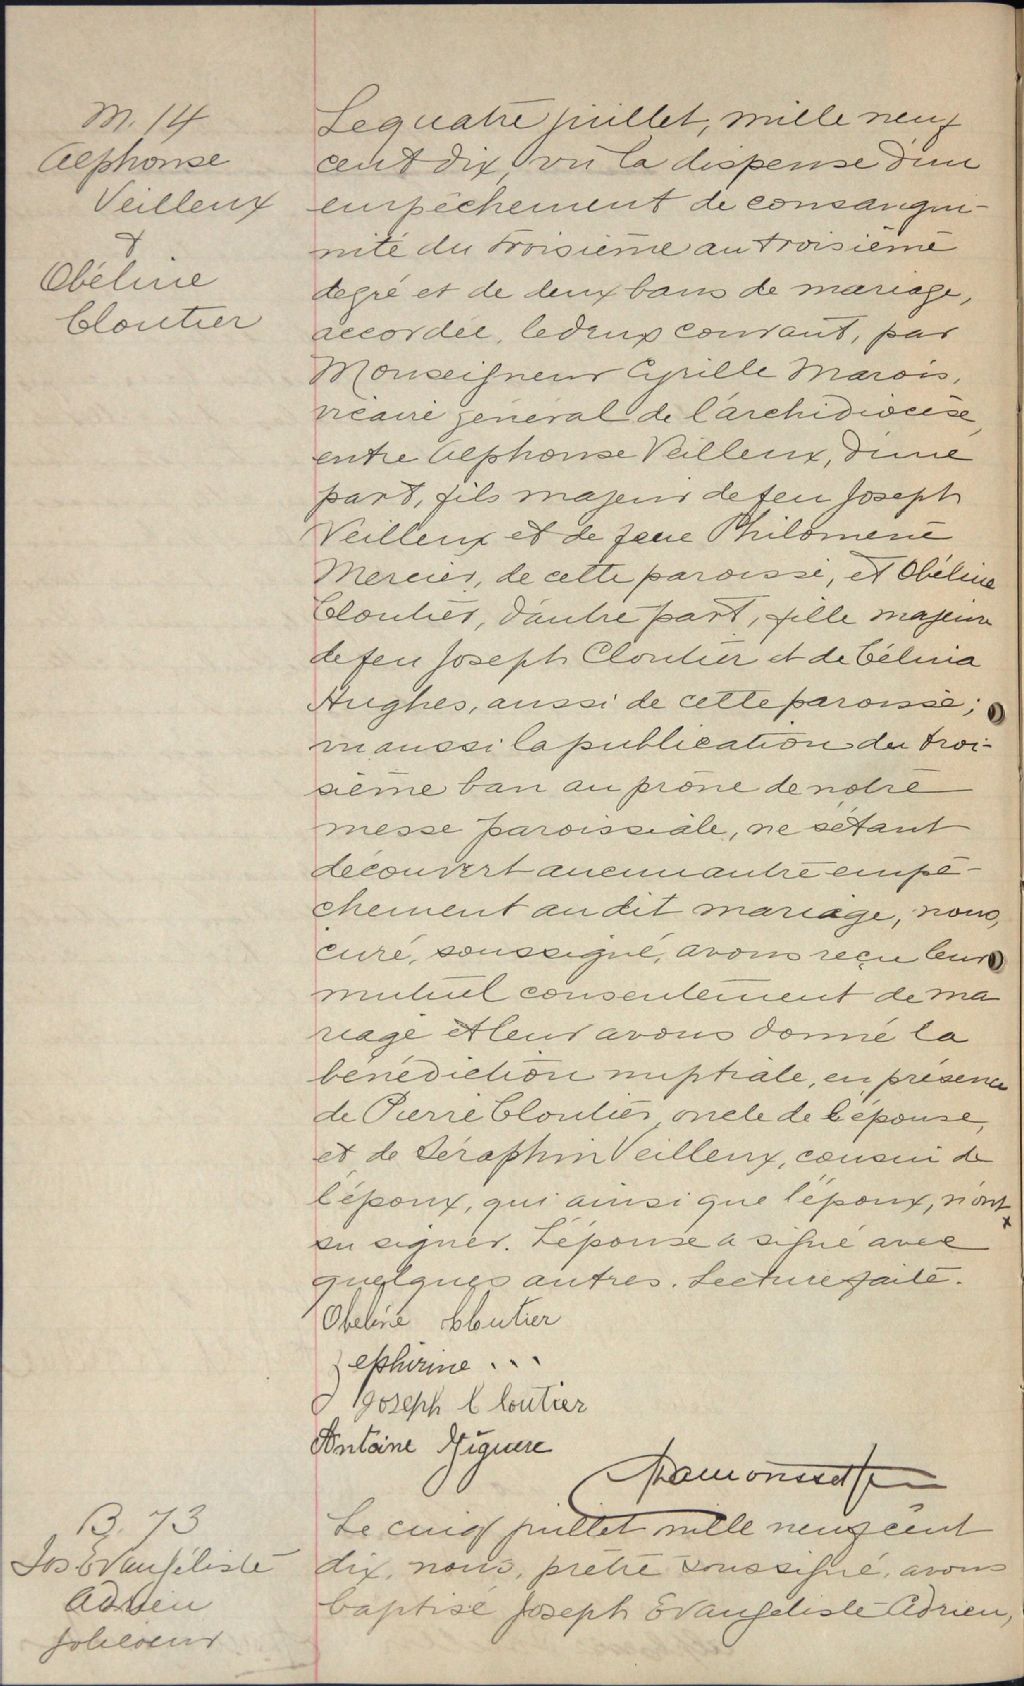 M. 14
Alphonse
Veilleux
&
Obéline
Cloutier
Le quatre juillet, mille neuf
cent dix, vu la dispense d'un
empêchement de consangui-
nité du troisième au troisième
degré et de deux bans de mariage,
accordée, le deux courant, par
Monseigneur Cyrille Marois,
vicaire général de l'archidiocèse,
entre Alphonse Veilleux, d'une
part, fils majeur de feu Joseph
Veilleux et de feue Philomène
Mercier, de cette paroisse, et Obéline
Cloutier, d'autre part, fille majeure
de feu Joseph Cloutier et de Célina
Hughes, aussi de cette paroisse;
vu aussi la publication du troi-
sième ban au prône de notre
messe paroissiale, ne s'étant
découvert aucun autre empê-
chement au dit mariage, nous,
curé, soussigné, avons reçu leur
mutuel consentement de ma
riage et leur avons donné la
bénédiction nuptiale, en présence
de Pierre Cloutier, oncle de l'épouse,
et de Séraphin Veilleux, cousin de
l'époux, qui ainsi que l'époux, n'ont
su signer. L'épouse a signé avec
quelques autres. Lecture faite.
Obeline Cloutier
Zephirine ...
Joseph Cloutier
Antoine Giguere
B. 73
Jos Evangéliste
Adrien
Jolicoeur
Le cinq juillet mille neuf cent
dix, nous, prêtre soussigné, avons
baptisé Joseph Evangeliste Adrien,